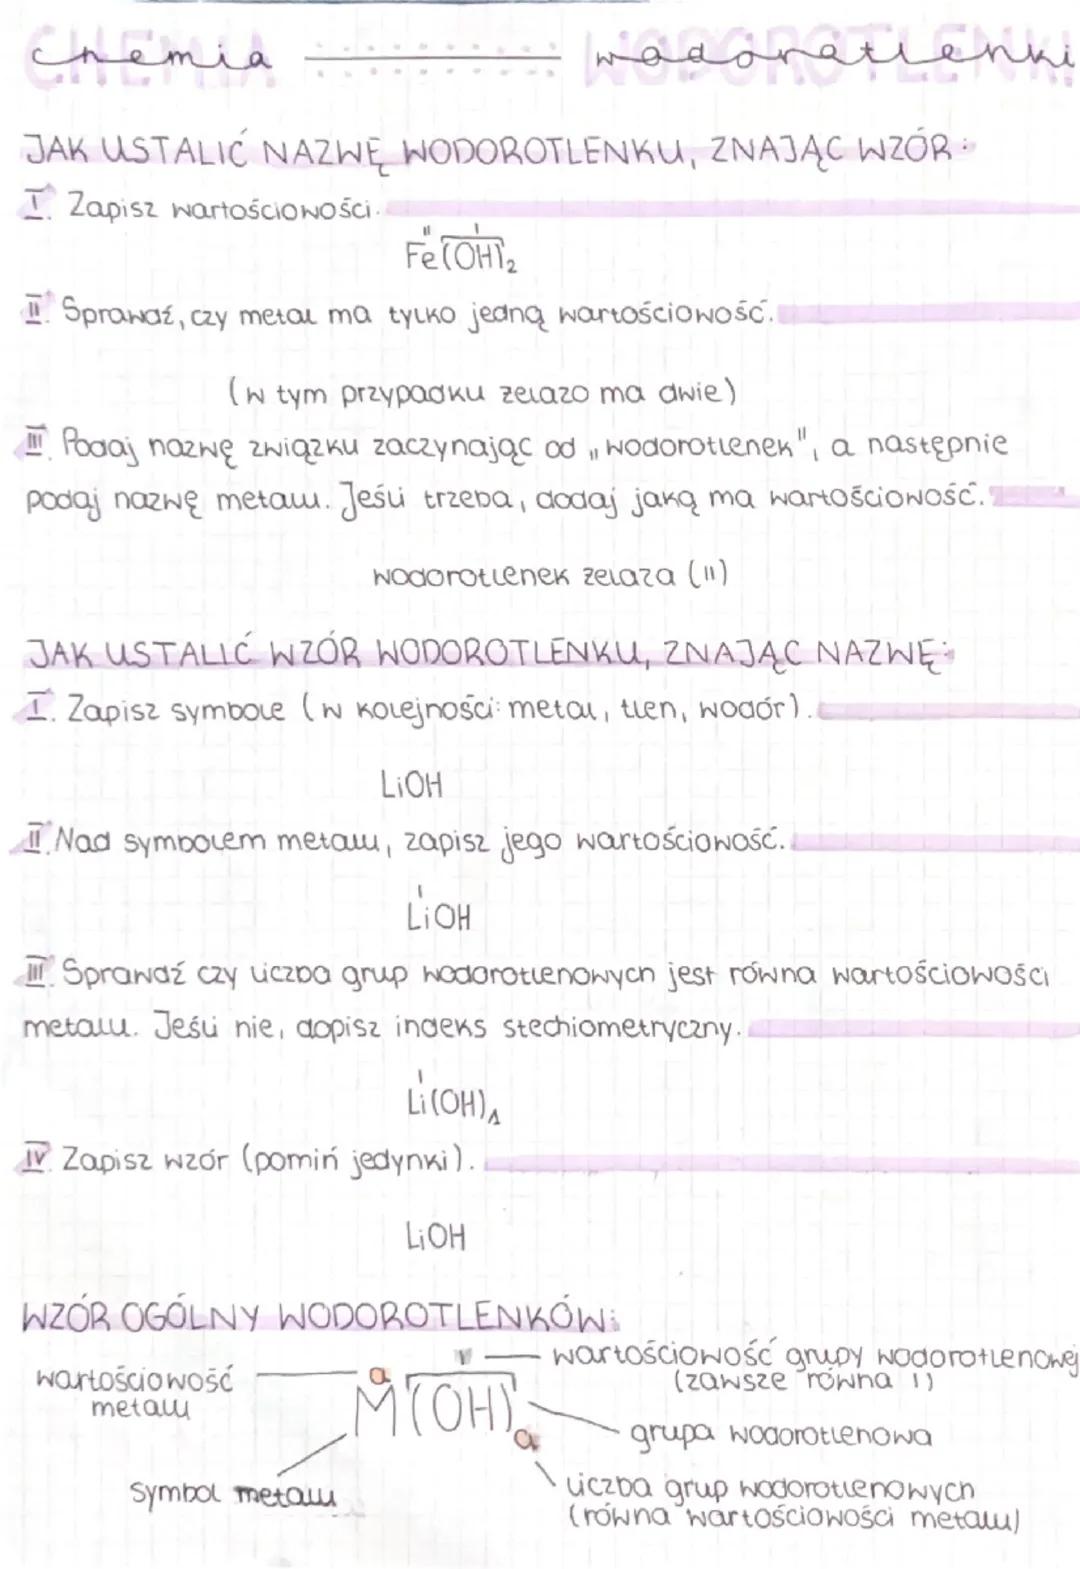 chemia wodorotlenki
JAK USTALIĆ NAZWĘ WODOROTLENKU, ZNAJĄC WZÓR:
I. Zapisz wartościowości.
II I
Fe(OH)₂
II. Sprawdź, czy metal ma tylko jedną wartościowość.
(w tym przypadku żelazo ma dwie)
III. Podaj nazwę związku zaczynając od „wodorotlenek", a następnie
podaj nazwę metalu. Jeśli trzeba, dodaj jaką ma wartościowość.
wodorotlenek żelaza (II)
JAK USTALIĆ WZÓR WODOROTLENKU, ZNAJĄC NAZWĘ:
I. Zapisz symbole (w kolejności: metal, tlen, wodór).
LiOH
II. Nad symbolem metalu, zapisz jego wartościowość.
I
LiOH
III. Sprawdź czy liczba grup wodorotlenowych jest równa wartościowości
metalu. Jeśli nie, dopisz indeks stechiometryczny.
I
Li(OH)₁
IV. Zapisz wzór (pomiń jedynki).
LiOH
WZÓR OGÓLNY WODOROTLENKÓW:
wartościowość metalu
a I
M(OH)a
wartościowość grupy wodorotlenowej
(zawsze równa I)
grupa wodorotlenowa
symbol metalu
liczba grup wodorotlenowych
(równa wartościowości metalu)